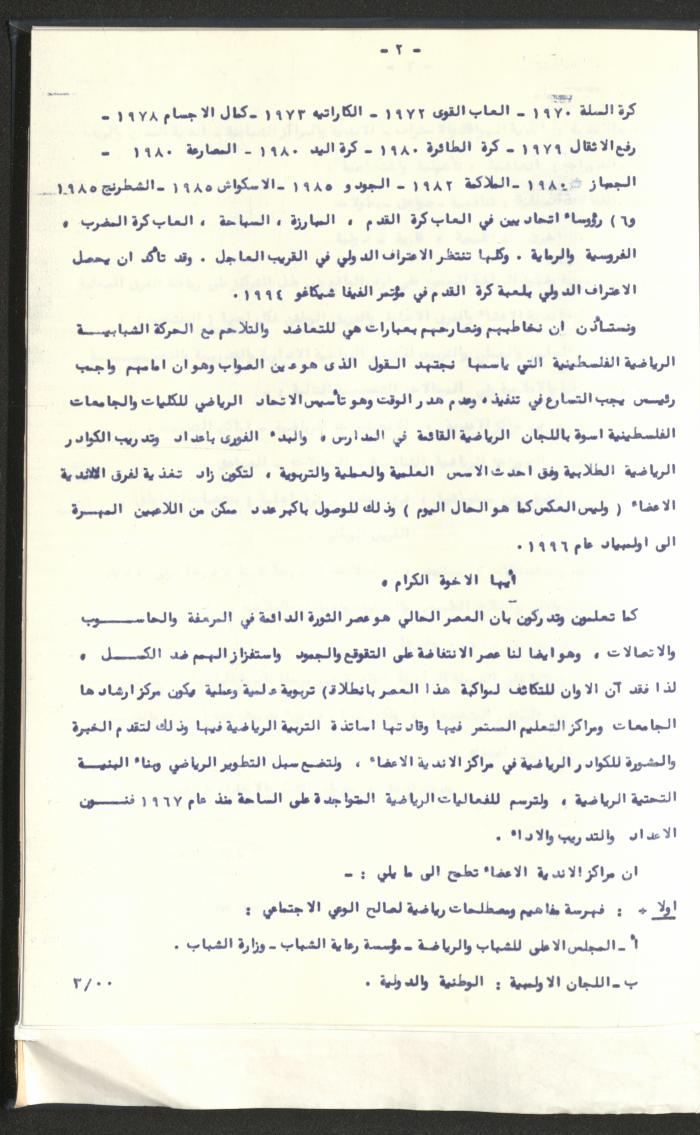 - ٢ -
كرة السلة ١٩٧٠ - العاب القوى ١٩٧٢ - الكاراتيه ١٩٧٣ - كمال الاجسام ١٩٧٨ -
رفع الاثقال ١٩٧٩ - كرة الطائرة ١٩٨٠ - كرة اليد ١٩٨٠ - المصارعة ١٩٨٠ -
الجمباز ١٩٨٠ - الملاكمة ١٩٨٢ - الجودو ١٩٨٥ - الاسكواش ١٩٨٥ - الشطرنج ١٩٨٥
و٦) رؤوساء اتحاديين في العاب كرة القدم ، المبارزة ، السباحة ، العاب كرة المضرب ،
الفروسية والرماية . وكلها تنتظر الاعتراف الدولي في القريب العاجل . وقد تأكد ان يحصل
الاعتراف الدولي بلعبة كرة القدم في مؤتمر الفيفا شيكافو ١٩٩٤ .
ونستأذن ان نخاطبهم ونصارحهم بعبارات هي للتعاضد والتلاحم مع الحركة الشبابيـــة
الرياضية الفلسطينية التي باسمها نجتهد القول الذى هو عين الصواب وهو ان امامهم واجب
رئيس يجب التسارع في تنفيذه وعدم هدر الوقت وهو تأسيس الاتحاد الرياضي للكليات والجامعات
الفلسطينية اسوة باللجان الرياضية القائمة في المدارس ، والبدء الفورى باعداد وتدريب الكوادر
الرياضية الطلابية وفق احدث الاسس العلمية والعملية والتربوية ، لتكون زاد تغذية لفرق الاندية
الاعضاء ( وليس العكس كما هو الحال اليوم ) وذلك للوصول باكبر عدد ممكن من اللاعبين المهـرة
الى اولمبياد عام ١٩٩٦ .
أيها الاخوة الكرام ،
كما تعلمون وتدركون بأن العصر الحالي هو عصر الثورة الدائمة في المعرفة والحاســـوب
والاتصالات ، وهو ايضا لنا عصر الانتفاضة على التقوقع والجمود واستفزاز الهمم ضد الكســـل ،
لذا فقد آن الاوان للتكاتف لمواكبة هذا العصر بانطلاقة تربوية علمية وعملية يكون مركز ارشادها
الجامعات ومراكز التعليم المستمر فيها وقادتها اساتذة التربية الرياضية فيها وذلك لتقدم الخبرة
والمشورة للكوادر الرياضية في مراكز الاندية الاعضاء ، ولتضع سبل التطوير الرياضي وبناء البنيـــة
التحتية الرياضية ، ولترسم للفعاليات الرياضية المتواجدة على الساحة منذ عام ١٩٦٧ فنـــون
الاعداد والتدريب والاداء .
ان مراكز الاندية الاعضاء تطمح الى ما يلي : -
اولا : فهرسة مفاهيم ومصطلحات رياضية لصالح الوعي الاجتماعي :
أ - المجلس الاعلى للشباب والرياضة - مؤسسة رعاية الشباب - وزارة الشباب .
ب - اللجان الاولمبية : الوطنية والدولية .
٣/٠٠